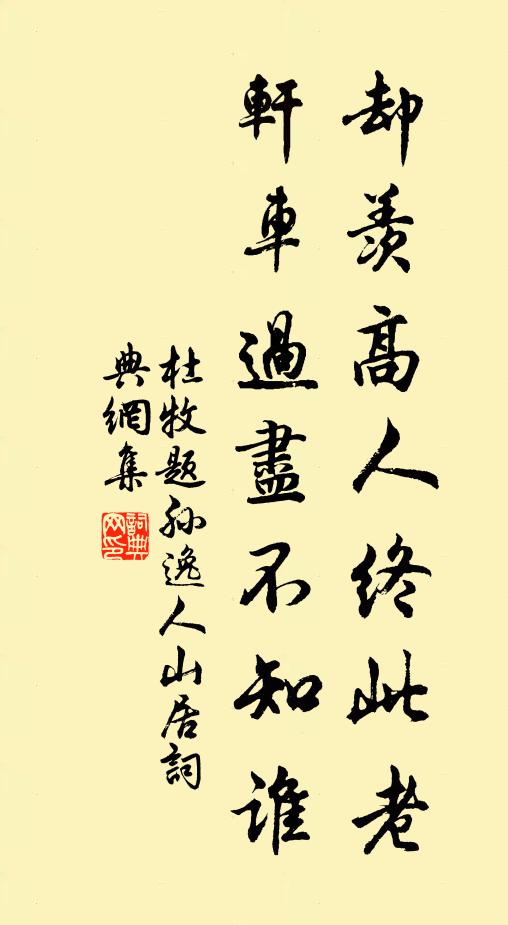 却羨高人終此老
軒車過盡不知誰
杜牧題孙逸人山居詞
典網集
詞典
网印